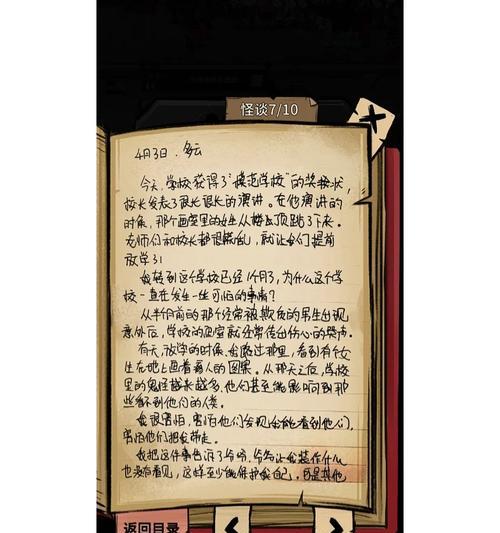 怪谈7/10
4月3日.多云
今天,学校获得了"模范学校"的奖状,
校长发表了很长很长的演讲。在他演讲的
时候,那个画室里的女生从楼顶跳了下来。
老师们和校长都很慌乱,就让我们提前
放学了!
我转到这个学校已经1个月了,为什么这个学
校一直在发生一些可怕的事情?
从半个月前的那个经常被欺负的男生出现
意外后,学校的画室就经常传出伤心的哭声。
有天,放学的时候,我路过那里,看到有个女
生在地上画着骇人的图案。从那天之后,学校
里的鬼怪越来越多,他们甚至能影响到那
些看不到他们的人类。
我很害怕,害怕他们发现我能看到他们,
害怕他们把我带走。
我把这件事告诉了爷爷,爷爷让我装作什么
也没有看见,这样至少能保护我自己,可是其他
返回目录